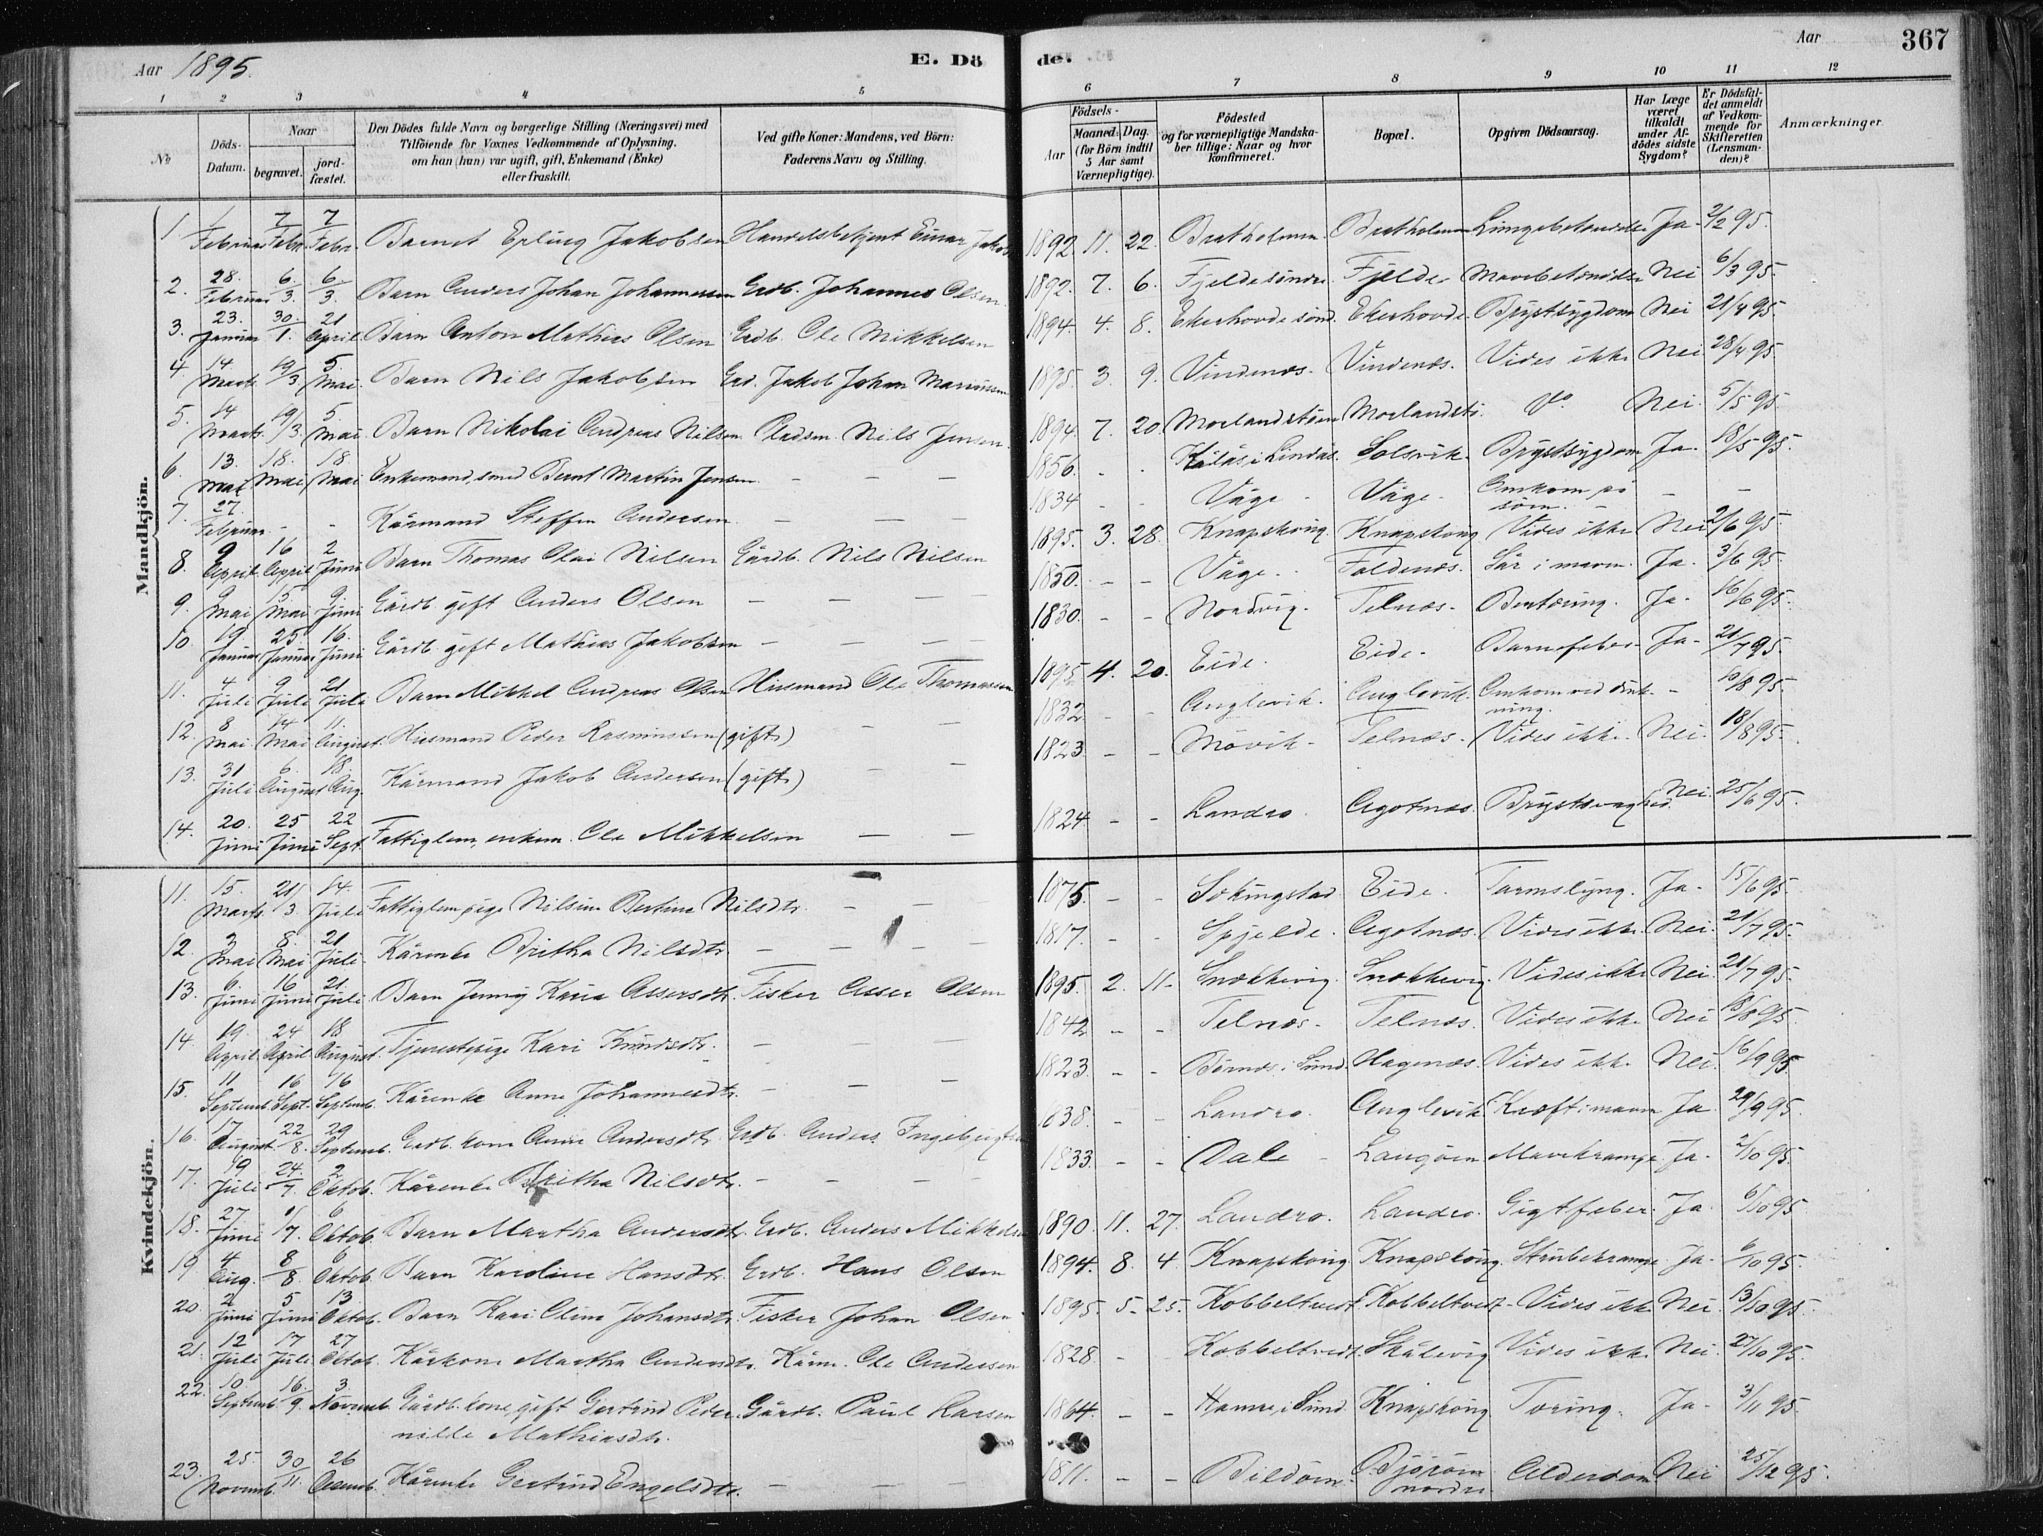 Aar 1895. E. Dö de. Aar 367
1 2 3 4 5 6 7 8 9 10 11 12
No
Döds-Datum.
Naar
begravet.
jord-fæstet.
Den Dödes fulde Navn og borgerlige Stilling (Næringsvei) med
Tilföiende for Voxnes Vedkommende af Oplysning,
om han (hun) var ugift, gift, Enkemand (Enke)
eller fraskilt.
Ved gifte Koner: Mandens, ved Börn:
Faderens Navn og Stilling.
Födsels-
Aar
Maaned. Dag.
(for Börn indtil
5 Aar samt
Værnepligtige).
Födested
og for værnepligtige Mandska-
ber tillige: Naar og hvor
konfirmeret.
Bopæl.
Opgiven Dödsaarsag.
Har Læge
været
tilkaldt
under Af-
dödes sidste
Sygdom?
Er Dödsfal-
det anmeldt
af Vedkom-
mende for
Skifteretten
(Lensman-
den)?
Anmærkninger.
Mandkjön.
1. 1 Februar 7 Febr. 7 Febr. Barnet Erling Jakobsen Handelsbetjent Einar Jakobs 1892. 11. 22. Bratholmen. Bratholmen Lungebetændelse Ja 2/2 95.
2. 28. Februar 6/3. 6/3. Barn Anders Johan Johannessen Grdb. Johannes Olsen 1892. 7. 6. Fjeldesöndre Fjelde Mavebetændelse Nei 6/3 95.
3. 23. Januar 30/1. 21 April Barn Anton Mathias Olsen Grdb. Ole Mikkelsen 1894. 4. 8. Ekerhovde sönd. Ekerhovde Brystsygdom Nei 21/4 95
4 14 Marts 19/3. 5. Mai Barn Nils Jakobsen Grd. Jakob Johan 1895. 3. 9. Vindenæs. Vindenæs. Vides ikke Nei 28/4 95
5. 14 Marts. 19/3. 5. Mai Barn Nikolai Andreas Nilsen Pladsm. Nils Jensen 1894. 7. 20. Morlandstöen Morlandstö. Do. Nei. 5/5 95.
6. 13. Mai 18. Mai 18 Mai Enkemand, smed Bernt Martin Jensen — — — 1856. - - i Lindås. Solsvik. Brystsygdom Ja. 18/5 95.
7. 27. Februar - - Kårmand Steffen Andersen — — — 1834 - - Våge - Våge. Omkom på söen. - - -
8. 9 April 16 April 2 Juni Barn Thomas Olai Nilsen Gårdb. Nils Nilsen 1895. 3. 28. Knapskoug Knapskoug Vides ikke Nei 2/6 95.
9. 9 Mai 15. Mai 9. Juni Gårdb. gift Anders Olsen — — — 1850. - - Våge. Foldenæs. Sår i maven. Ja. 3/6 95.
10 19 Januar 25. Januar 16. Juni Gårdb. gift Mathias Jakobsen — — — 1830. - - Nordvig. Telnæs. Ja. 16/6 95.
11. 4 Juli 9 Juli 21 Juli Barn Mikkel Andreas Olsen Husmand Ole Thomassen 1895. 4. 20. Eide. Eide. Barnefeber Ja- 21/7 95.
12. 8 Mai 14 Mai 11. August. Husmand Peder Rasmussen (gift) — — 1832 - - Anglevik. Anglevik. Omkom ved drukning. - 10/8 95.
13. 31 Juli 6. August 18 Aug. Kårmand Jakob Andersen (gift) — — 1823 - - Mövik. Telnæs. Vides ikke. Nei. 18/8 95.
14. 20. Juni 25 Juni 22 Sept. Fattiglem, enkem. Ole Mikkelsen — — 1824 - - Landro. Agotnæs. Brystsvaghed Nei 25/6 95.
Kvindekjön.
11. 15. Marts. 21/3. 14. Juli Fattiglem pige Nilsine Bertine Nilsdtr. — — 1875. - - Sekingstad. Eide. Tarmslyng. Ja. 15/6 95.
12. 3 Mai 8. Mai 21 Juli Kårenke Britha Nilsdtr. — — — 1817. - - Spjelde. Agotnæs. Vides ikke. Nei. 21/7 95.
13. 6. Juni 16 Juni 21. Juli Barn Jenny Karia Assersdtr. Fisker Asser Olsen 1895. 2. 11. Snekkevig Snekkevig Vides ikke Nei. 21/7 95.
14. 19. April 24 April 18 August. Tjenestepige Kari Knudsdtr. — — — 1842 - - Telnæs. Telnæs. Vides ikke Nei 18/8 95.
15. 11 Septemb. 16 Sept. 16 Septemb. Kårenke Anne Johannesdtr. — — — 1823. - - i Sund. Hagenæs. Vides ikke. Nei. 16/9 95
16. 17 August 22/8. 29 Septemb. Grdb. kone Anna Andersdtr. Grdb. Anders 1838. - - Landro. Anglevik Kræft i maven Ja 29/9 95.
17. 19 Juli 24/7. 2 Oktob. Kårenke Britha Nilsdtr. — — — 1833. - - Dale - Langöen Mavekrampe Ja. 2/10 95.
18. 27 Juni /7. 6 Oktob. Barn Martha Andersdtr. Grdb. Anders Mikkelsen 1890. 11. 27. Landro. Landro. Gigtfeber. Ja. 6/10 95.
19 4 Aug. 8/8. 6 Oktob. Barn Karoline Hansdtr. Grdb. Hans Olsen 1894. 8. 4. Knapskoug Knapskoug. Strubekrampe Ja. 6/10 95.
20. 2 Juni 5 Juni 13 Oktob. Barn Kari Oline Johansdtr. Fisker Johan Olsen 1895. 5. 25. Kobbeltvedt Kobbeltvedt Vides ikke Nei. 13/10 95.
21. 12 Juli 17 Juli. 27 Oktob. Kårkone Martha Andersdtr. Kårm. Ole Andersen 1828. - - Kobbeltvedt. Skålevig Vides ikke Nei. 27/10 95.
22. 10 Septemb. 16/9. 3 Novemb. Gårdb. kone, gift Gertrud Peder- Gårdb. Paul Larsen 1864. - - Hamre i Sund. Knapskoug Tæring. Ja- 3/11 95.
nille Mathiasdtr.
23. 25. Novemb. 30/11. 26 Decemb. Kårenke Gertrud Engelsdtr. — — 1811. - - Bildöen. Björöen nordre Alderdom. Nei 25/12 95.